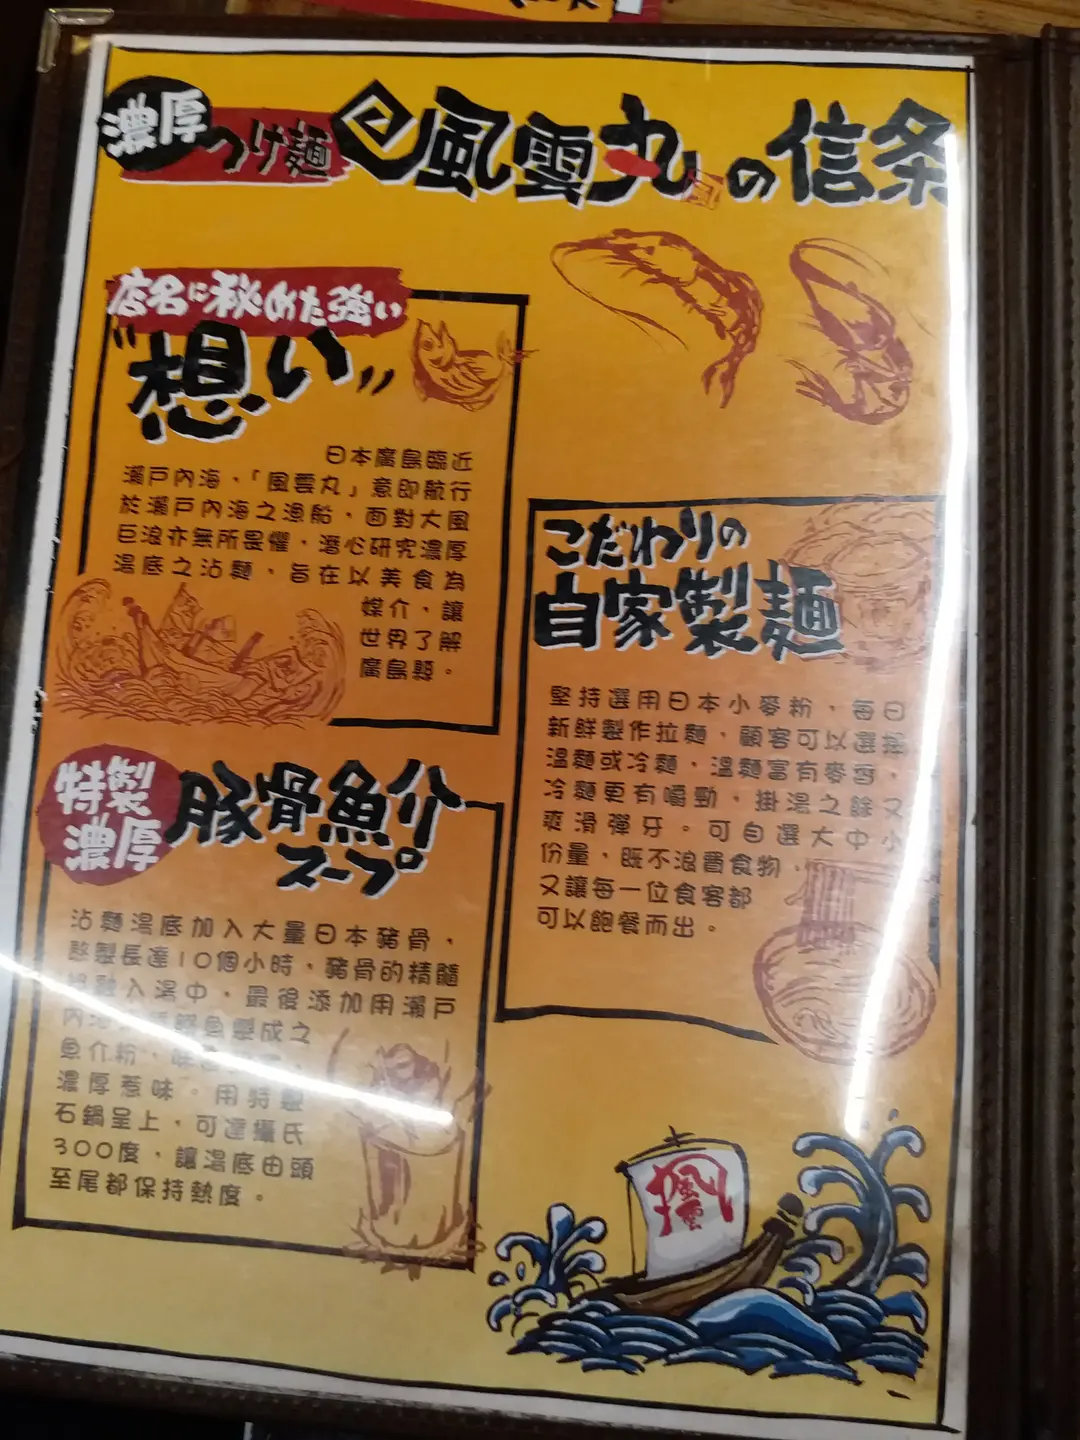 濃厚
つけ麺
風雲丸の信条
店名に秘めた強い
"想い"
日本廣島臨近
瀨戶內海,「風雲丸」意即航行
於瀨戶內海之漁船,面對大風
巨浪亦無所畏懼,潛心研究濃厚
湯底之沾麵,旨在以美食為
媒介,讓
世界了解
廣島縣。
こだわりの
自家製麺
堅持選用日本小麥粉,每日
新鮮製作拉麵,顧客可以選擇
溫麵或冷麵,溫麵富有麥香,
冷麵更有嚼勁,掛湯之餘又
爽滑彈牙。可自選大中小
份量,既不浪費食物,
又讓每一位食客都
可以飽餐而出。
特製
濃厚
豚骨魚介
スープ
沾麵湯底加入大量日本豬骨,
熬製長達10個小時,豬骨的精髓
融入湯中,最後添加用瀨戶
內海 魚製成之
魚介粉,
濃厚惹味。用特製
石鍋呈上,可達攝氏
300度,讓湯底由頭
至尾都保持熱度。
風雲